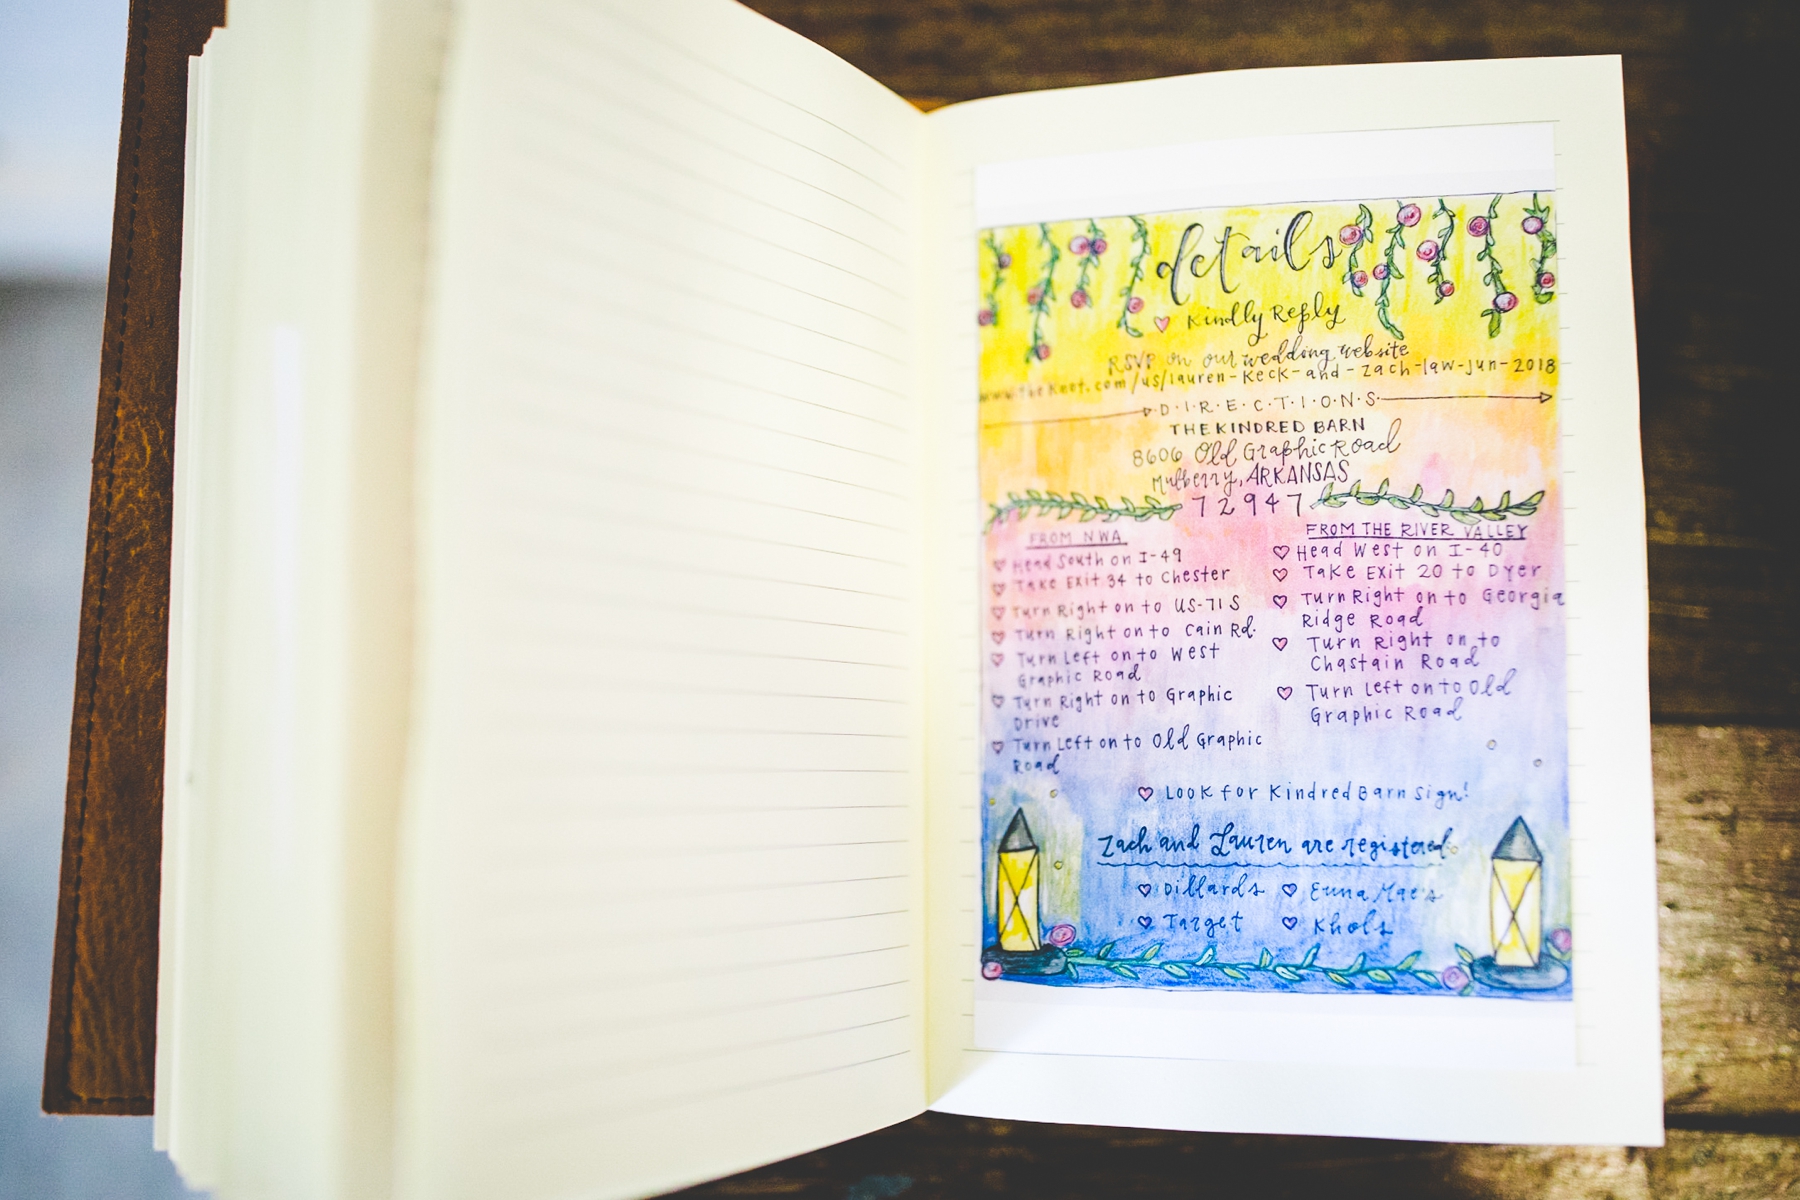 details
Kindly Reply
RSVP on our wedding website
www.theknot.com/us/lauren-keck-and-zach-law-jun-2018
D·I·R·E·C·T·I·O·N·S
THE KINDRED BARN
8606 Old Graphic Road
Mulberry, ARKANSAS
72947
FROM NWA
Head South on I-49
Take Exit 34 to Chester
Turn Right on to US-71 S
Turn Right on to Cain Rd.
Turn Left on to West
Graphic Road
Turn Right on to Graphic
Drive
Turn Left on to Old Graphic
Road
FROM THE RIVER VALLEY
Head West on I-40
Take Exit 20 to Dyer
Turn Right on to Georgia
Ridge Road
Turn Right on to
Chastain Road
Turn Left on to Old
Graphic Road
Look for Kindred Barn Sign!
Zach and Lauren are registered:
Dillards Emma Mae's
Target Khols